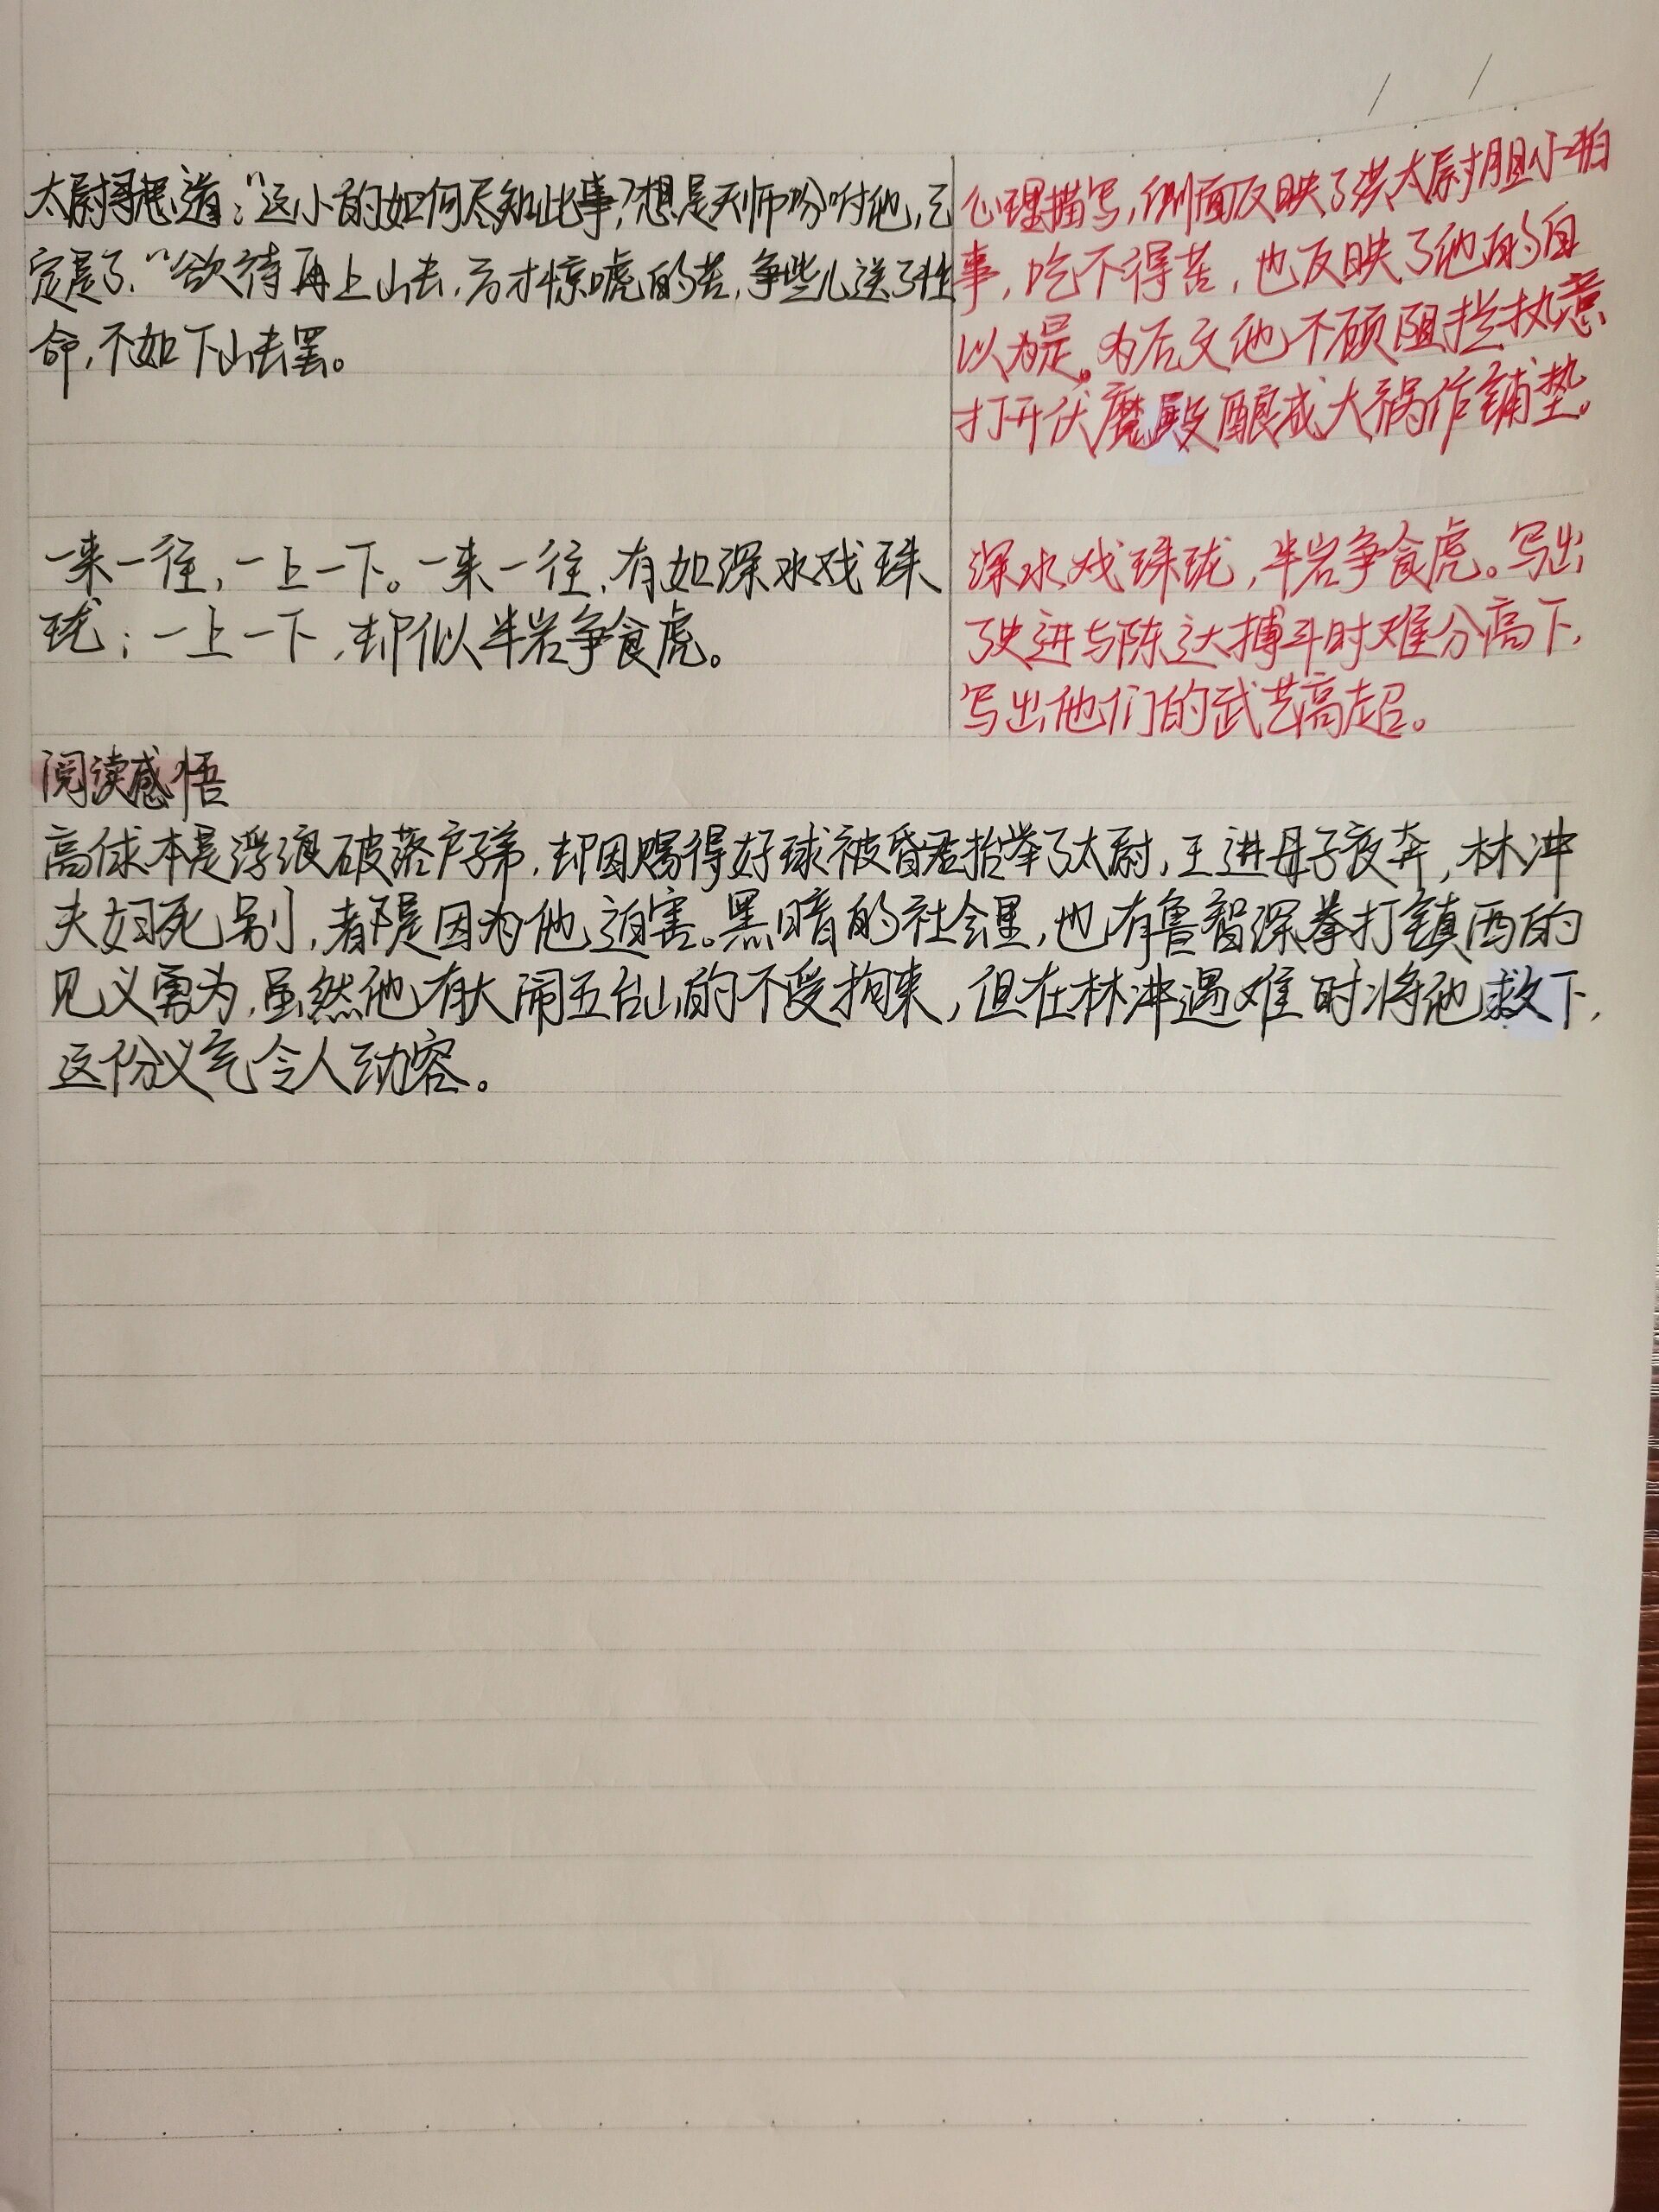 太尉寻思道:"这小的如何尽知此事?想是天师吩咐他,已
定是了."欲待再上山去,方才惊唬的苦,争些儿送了性
命,不如下山去罢。
心理描写,侧面反映了洪太尉胆小怕
事,吃不得苦,也反映了他的自
以为是。为后文他不顾阻拦执意
打开伏魔殿酿成大祸作铺垫。
一来一往,一上一下。一来一往,有如深水戏珠
珑;一上一下,却似半岩争食虎。
深水戏珠珑,半岩争食虎。写出
了史进与陈达搏斗时难分高下,
写出他们的武艺高超。
阅读感悟
高俅本是浮浪破落户子弟,却因踢得好球被昏君抬举了太尉,王进母子夜奔,林冲
夫妇死别,都是因为他迫害。黑暗的社会里,也有鲁智深拳打镇西的
见义勇为,虽然他有大闹五台山的不受拘束,但在林冲遇难时将他救下,
这份义气令人动容。